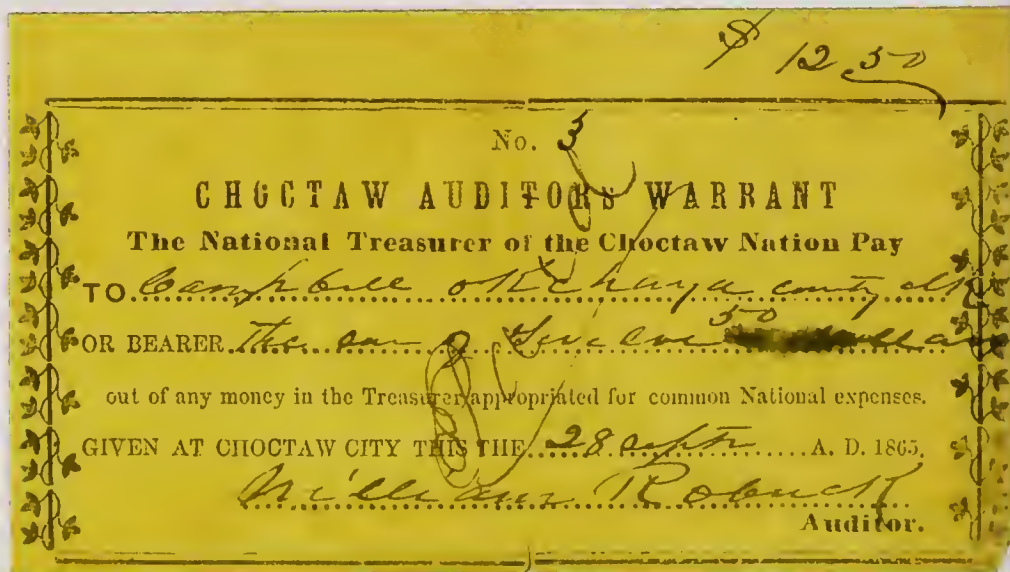 $ 12.50
No. 3
CHOCTAW AUDITORS WARRANT
The National Treasurer of the Choctaw Nation Pay
TO Campbell Okchaya county
OR BEARER The sum of Twelve 50
out of any money in the Treasurer appropriated for common National expenses.
GIVEN AT CHOCTAW CITY THIS THE 28 Septr A. D. 1865.
William Robuck
Auditor.